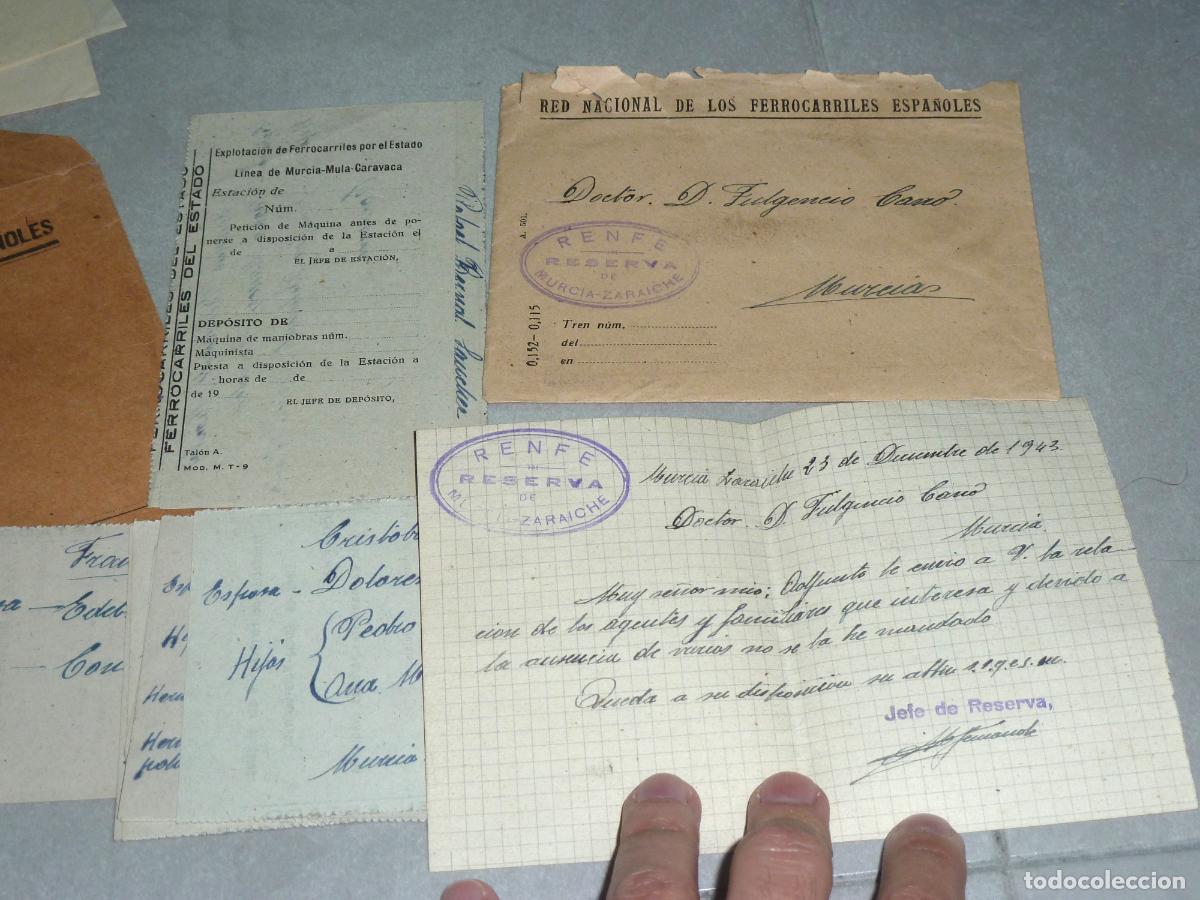 ÑOLES
FERROCARRILES DEL ESTADO
FERROCARRILES DEL ESTADO
Explotación de Ferrocarriles por el Estado
Línea de Murcia-Mula-Caravaca
Estación de
Núm.
Petición de Máquina antes de po-
nerse a disposición de la Estación el
de a
EL JEFE DE ESTACIÓN,
DEPÓSITO DE
Máquina de maniobras núm.
Maquinista
Puesta a disposición de la Estación a
horas de de
de 19
EL JEFE DE DEPÓSITO,
Talón A.
MOD. M. T-9
RED NACIONAL DE LOS FERROCARRILES ESPAÑOLES
Doctor. D. Fulgencio Cano.
Murcia
A. 501.
0,152-0,115
RENFE
RESERVA
DE
MURCIA-ZARAICHE
Tren núm.
del
en
RENFE
RESERVA
DE
-ZARAICHE
Murcia Zaraiche 23 de Diciembre de 1943.
Doctor. D. Fulgencio Cano
Murcia.
Muy señor mio; Adjunto le envio a V. la rela-
cion de los agentes y familiares que interesa y devido a
la ausencia de varios no se la he mandado
Queda a su disposicion su attu s.s.q.e.s.m.
Jefe de Reserva,
Cristób
Esposa - Dolores
Hijos
Pedro
Ana. M
Murcia
Fran
Edeb
Con
Esp
Hi
Her